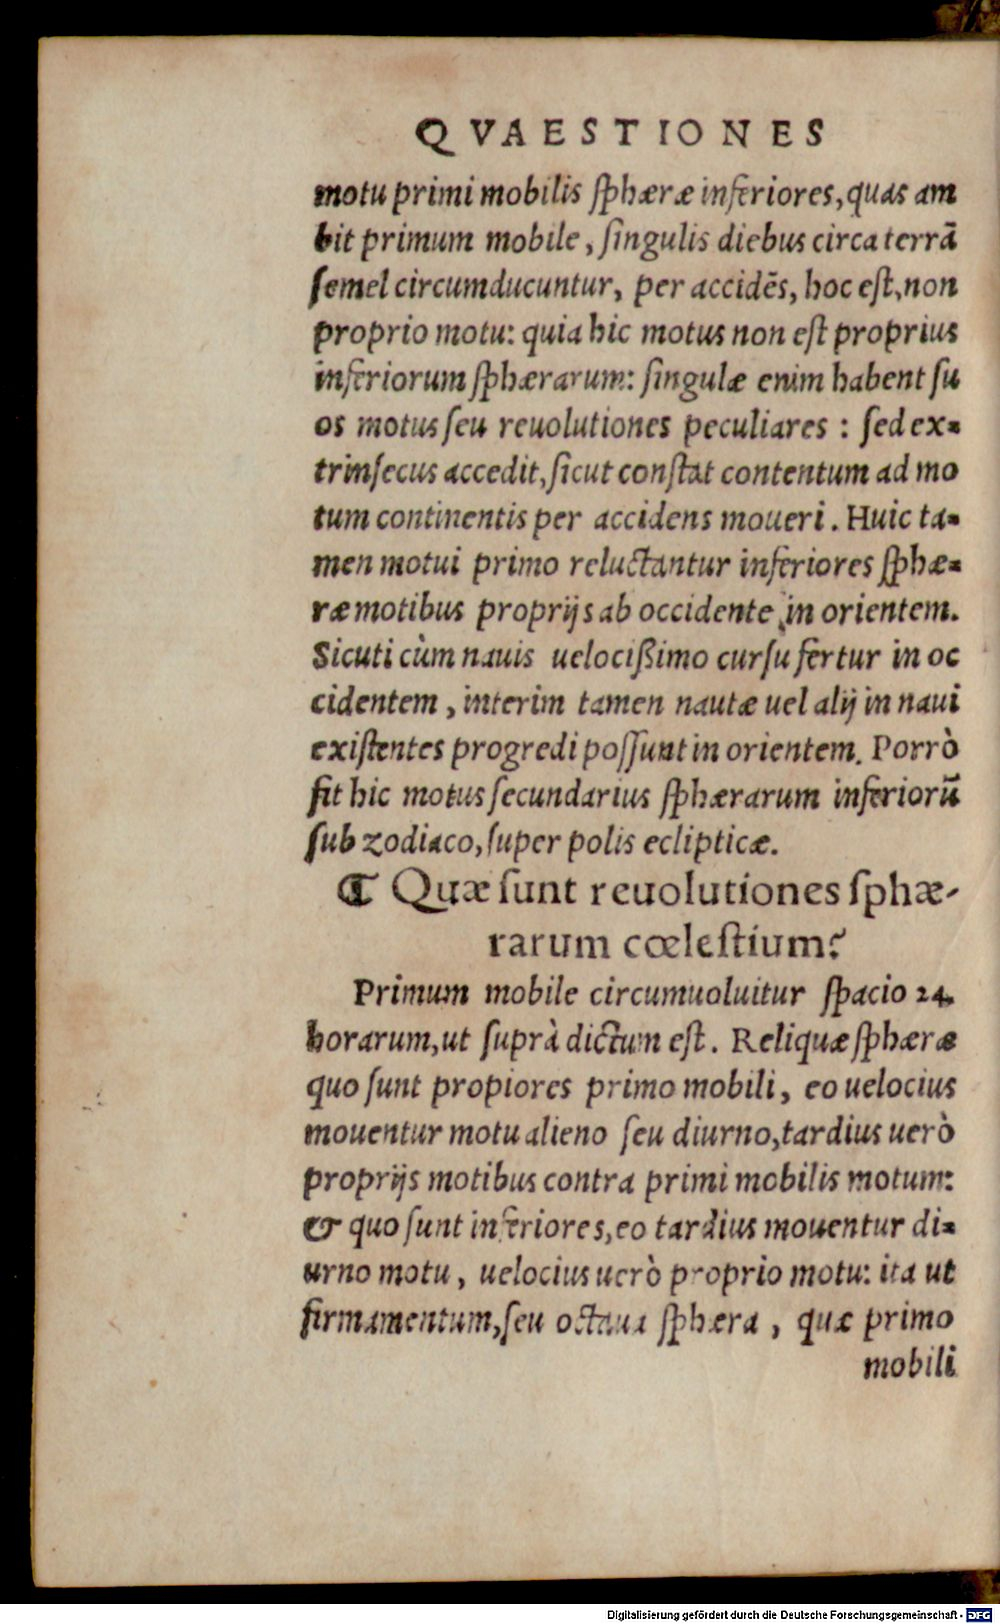 QVAESTIONES
motu primi mobilis sphæræ inferiores, quas am
bit primum mobile, singulis diebus circa terrã
semel circumducuntur, per accidẽs, hoc est, non
proprio motu: quia hic motus non est proprius
inferiorum sphærarum: singulæ enim habent su
os motus seu reuolutiones peculiares : sed ex-
trinsecus accedit, sicut constat contentum ad mo
tum continentis per accidens moueri. Huic ta-
men motui primo reluctantur inferiores sphæ-
ræ motibus proprijs ab occidente in orientem.
Sicuti cùm nauis uelocißimo cursu fertur in oc
cidentem, interim tamen nautæ uel alij in naui
existentes progredi possunt in orientem. Porrò
fit hic motus secundarius sphærarum inferiorũ
sub zodiaco, super polis eclipticæ.
¶ Quæ sunt reuolutiones sphæ-
rarum cœlestium?
Primum mobile circumuoluitur spacio 24.
horarum, ut suprà dictum est. Reliquæ sphæræ
quo sunt propiores primo mobili, eo uelocius
mouentur motu alieno seu diurno, tardius uerò
proprijs motibus contra primi mobilis motum:
& quo sunt inferiores, eo tardius mouentur di-
urno motu, uelocius uerò proprio motu: ita ut
firmamentum, seu octaua sphæra, quæ primo
mobili
Digitalisierung gefördert durch die Deutsche Forschungsgemeinschaft - DFG